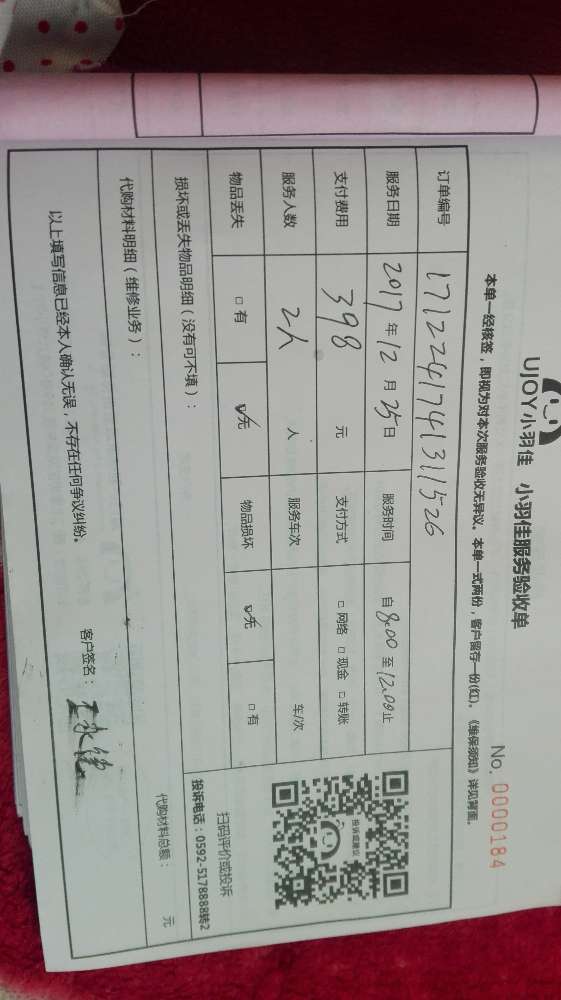 UJOY小羽佳 小羽佳服务验收单
No. 0000184
本单一经核签，即视为对本次服务验收无异议。本单一式两份，客户留存一份(红)。《维保须知》详见背面。
订单编号 171224174131526
服务日期 2017年12月25日 服务时间 自8:00至12:00止
支付费用 398 元 支付方式 □网络 □现金 □转账
服务人数 2人 人 服务车次 车/次
物品丢失 □有 ☑无 物品损坏 ☑无 □有
损坏或丢失物品明细（没有可不填）：
代购材料明细（维修业务）：
代购材料总额： 元
投诉或建议
扫码评价或投诉
投诉电话：0592-5178888转2
以上填写信息已经本人确认无误，不存在任何争议纠纷。
客户签名：